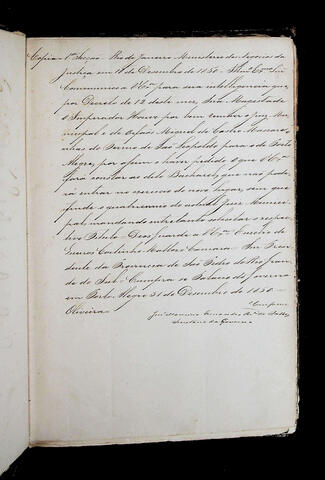 Copia = 1ª Secção = Rio de Janeiro Ministerio de Negocios da
Justiça em 18 de Dezembro de 1850 = Illmo Exmo Snr
Communico a V.Exª para sua intelligencia que,
por Decreto de 12 deste mez, Sua Magestade
o Imperador Houve por bem remover o Juiz Mu-
nicipal e de Orfãos Miguel de Castro Mascare-
nhas do Termo de São Leopoldo para o de Porto
Alegre, por assim o haver pedido o que V.Exª
fará constar ao dito Bacharel, que não pode-
rá entrar no exercicio do novo lugar, sem que
finde o quatriennio do actual Juiz Munici-
pal, mandando entretanto solicitar o respec-
tivo Titulo = Deos guarde a V.Exª Euzebio de
Queiroz Coutinho Mattoso Camara = Snr Presi-
dente da Provincia de São Pedro do Rio Gran-
de do Sul = Cumpra-se Palacio do Governo
em Porto Alegre 31 de Dezembro de 1850 =
Oliveira =
Conforme
Secretario do Governo